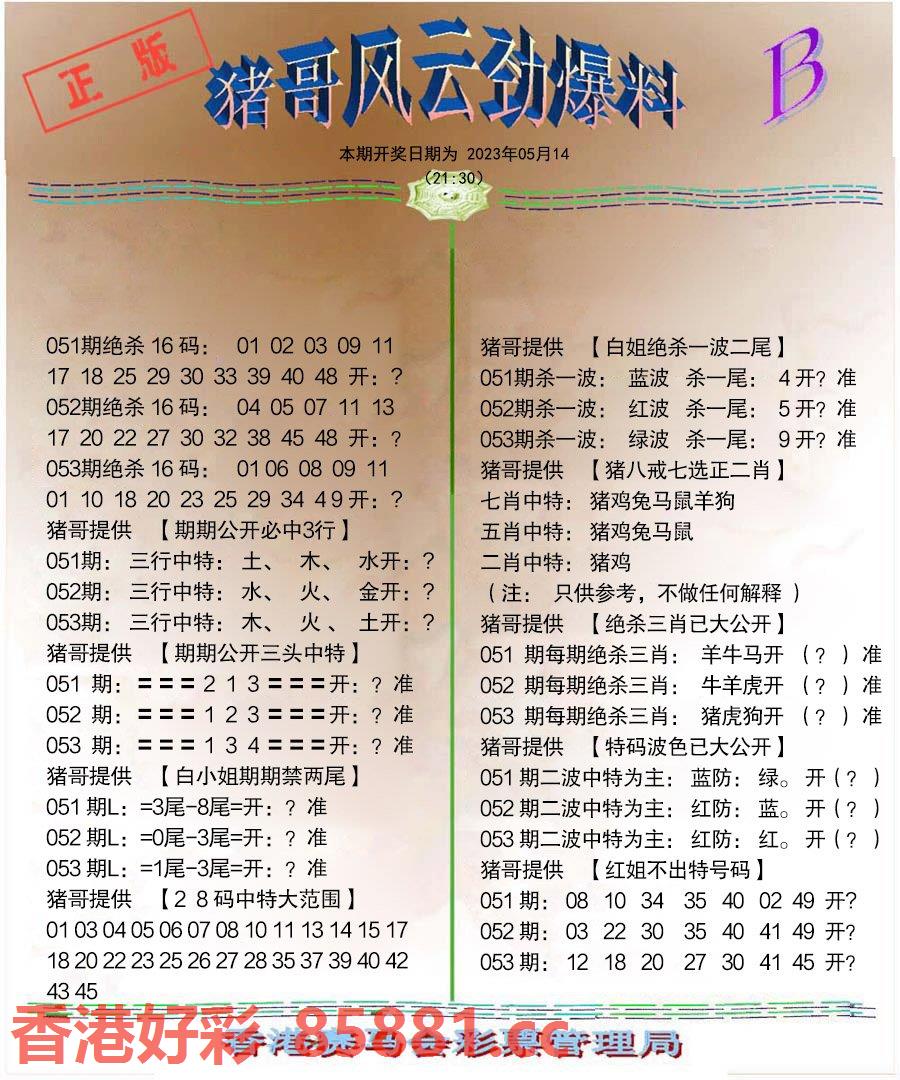 正版
猪哥风云劲爆料
B
本期开奖日期为 2023年05月14
(21:30)
051期绝杀 16 码： 01 02 03 09 11
17 18 25 29 30 33 39 40 48 开：?
052期绝杀 16 码： 04 05 07 11 13
17 20 22 27 30 32 38 45 48 开：?
053期绝杀 16 码： 01 06 08 09 11
01 10 18 20 23 25 29 34 4 9 开：?
猪哥提供 【期期公开必中3行】
051期： 三行中特： 土、 木、 水开：?
052期： 三行中特： 水、 火、 金开：?
053期： 三行中特： 木、 火、 土开：?
猪哥提供 【期期公开三头中特】
051 期：===2 1 3===开：? 准
052 期：===1 2 3===开：? 准
053 期：===1 3 4===开：? 准
猪哥提供 【白小姐期期禁两尾】
051 期L：=3尾-8尾=开：? 准
052 期L：=0尾-3尾=开：? 准
053 期L：=1尾-3尾=开：? 准
猪哥提供 【2 8 码中特大范围】
01 03 04 05 06 07 08 10 11 13 14 15 17
18 20 22 23 25 26 27 28 35 37 39 40 42
43 45
猪哥提供 【白姐绝杀一波二尾】
051期杀一波： 蓝波 杀一尾： 4 开? 准
052期杀一波： 红波 杀一尾： 5 开? 准
053期杀一波： 绿波 杀一尾： 9 开? 准
猪哥提供 【猪八戒七选正二肖】
七肖中特： 猪鸡兔马鼠羊狗
五肖中特： 猪鸡兔马鼠
二肖中特： 猪鸡
(注： 只供参考，不做任何解释 )
猪哥提供 【绝杀三肖已大公开】
051 期每期绝杀三肖： 羊牛马开 (? ) 准
052 期每期绝杀三肖： 牛羊虎开 (? ) 准
053 期每期绝杀三肖： 猪虎狗开 (? ) 准
猪哥提供 【特码波色已大公开】
051 期二波中特为主： 蓝防： 绿。 开 (? )
052 期二波中特为主： 红防： 蓝。 开 (? )
053 期二波中特为主： 红防： 红。 开 (? )
猪哥提供 【红姐不出特号码】
051 期： 08 10 34 35 40 02 49 开?
052 期： 03 22 30 35 40 41 49 开?
053 期： 12 18 20 27 30 41 45 开?
香港好彩 85881.cc
香港赛马会彩票管理局